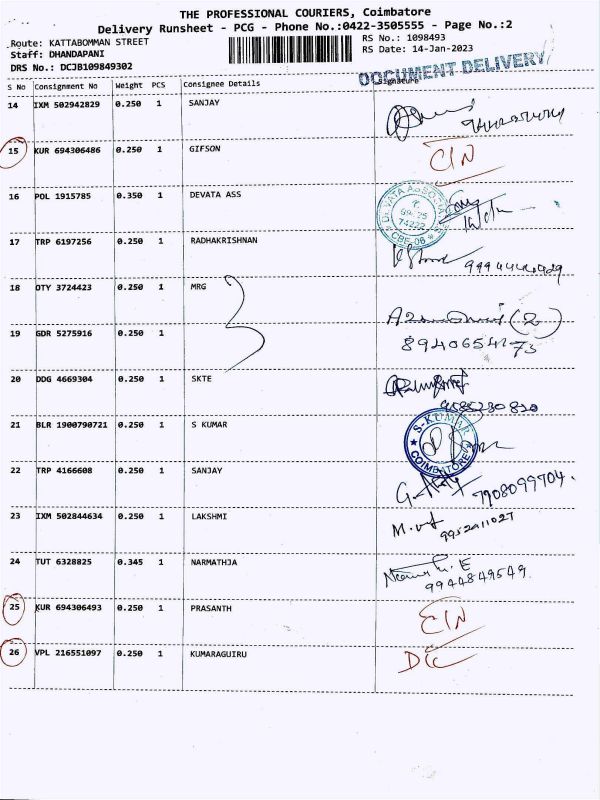 THE PROFESSIONAL COURIERS, Coimbatore
Delivery Runsheet - PCG - Phone No.:0422-3505555 - Page No.:2
Route: KATTABOMMAN STREET
RS No.: 1098493
Staff: DHANDAPANI
RS Date: 14-Jan-2023
DRS No.: DCJB109849302
DOCUMENT DELIVERY
S No Consignment No Weight PCS Consignee Details Signature
14 IXM 502942829 0.250 1 SANJAY
15 KUR 694306486 0.250 1 GIFSON
16 POL 1915785 0.350 1 DEVATA ASS
17 TRP 6197256 0.250 1 RADHAKRISHNAN
18 OTY 3724423 0.250 1 MRG
3
19 GDR 5275916 0.250 1
8940654273
20 DDG 4669304 0.250 1 SKTE
9585230820
21 BLR 1900790721 0.250 1 S KUMAR
S-KUMAR
COIMBATORE
22 TRP 4166608 0.250 1 SANJAY
7908099704.
23 IXM 502844634 0.250 1 LAKSHMI
9952911027
24 TUT 6328825 0.345 1 NARMATHJA
9944849549.
25 KUR 694306493 0.250 1 PRASANTH
26 VPL 216551097 0.250 1 KUMARAGUIRU